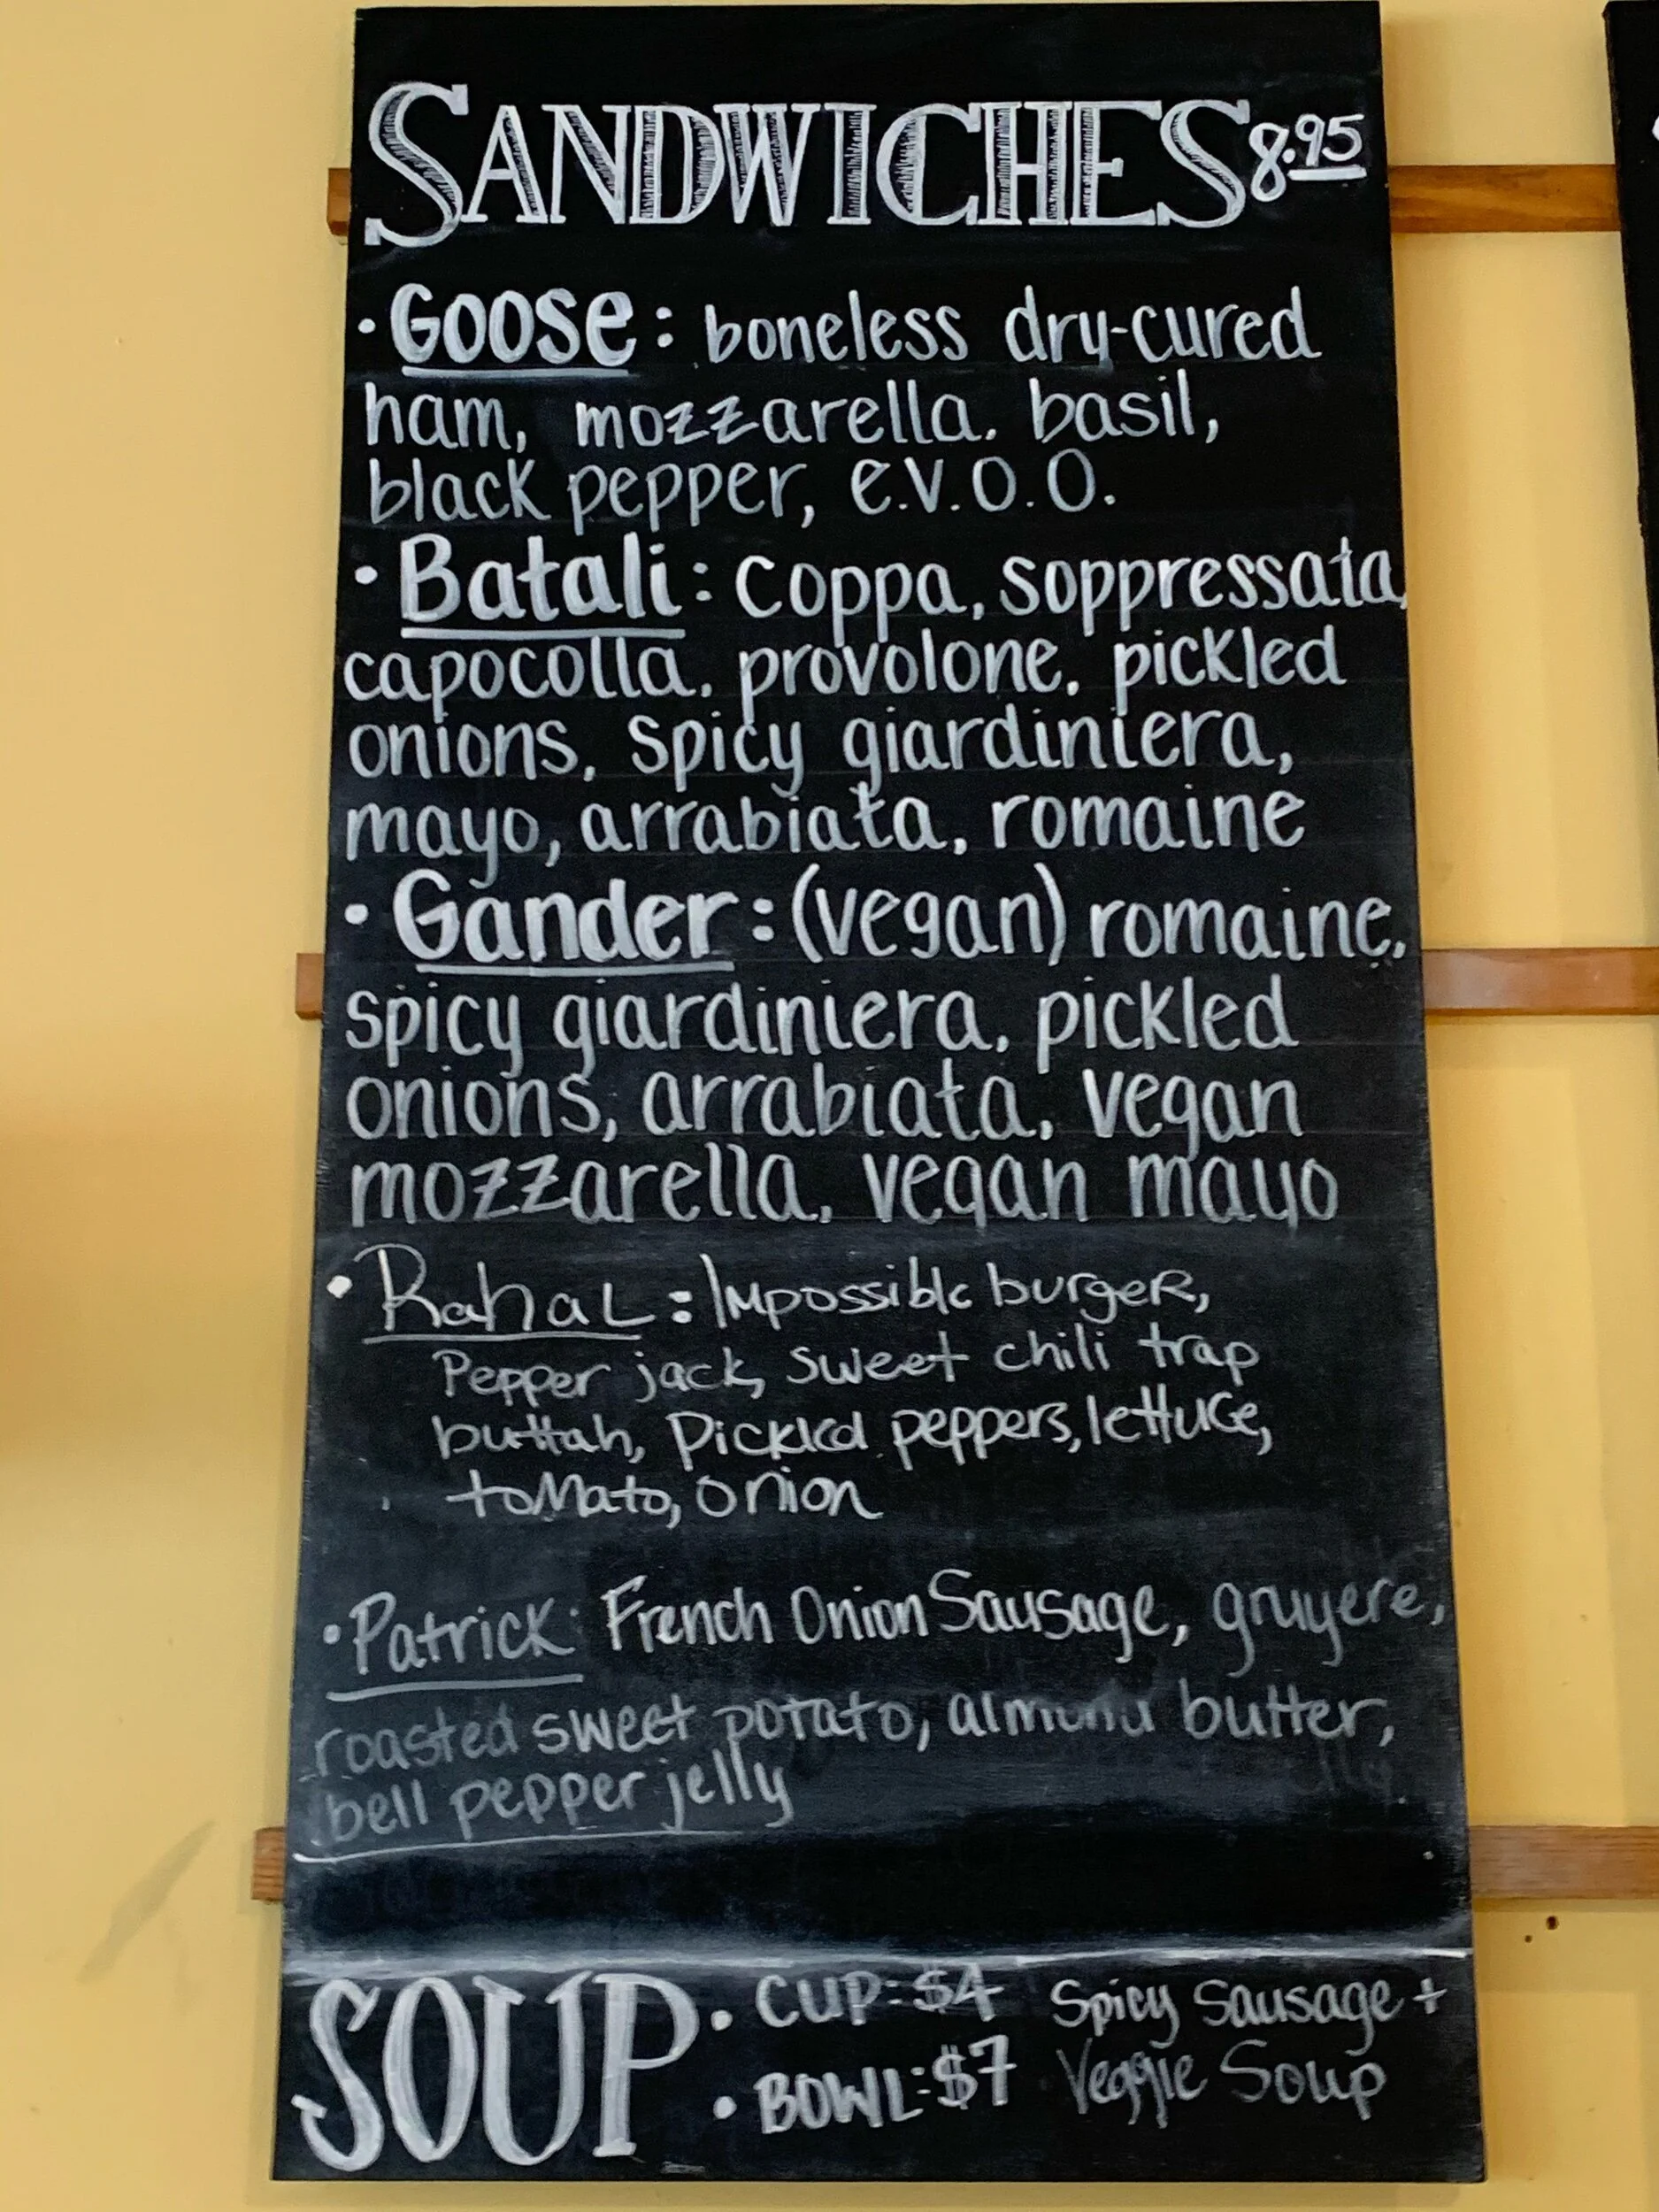 SANDWICHES 8.95
• Goose: boneless dry-cured
ham, mozzarella. basil,
black pepper, e.v.o.o.
• Batali: coppa, soppressata,
capocolla, provolone, pickled
onions, spicy giardiniera,
mayo, arrabiata, romaine
• Gander: (vegan) romaine,
spicy giardiniera, pickled
onions, arrabiata, vegan
mozzarella, vegan mayo
• Rahal: Impossible burger,
Pepper jack, sweet chili trap
buttah, Pickled peppers, lettuce,
tomato, onion
• Patrick: French Onion Sausage, gruyere,
roasted sweet potato, almond butter,
bell pepper jelly
SOUP • CUP: $4 Spicy Sausage +
• BOWL: $7 Veggie Soup